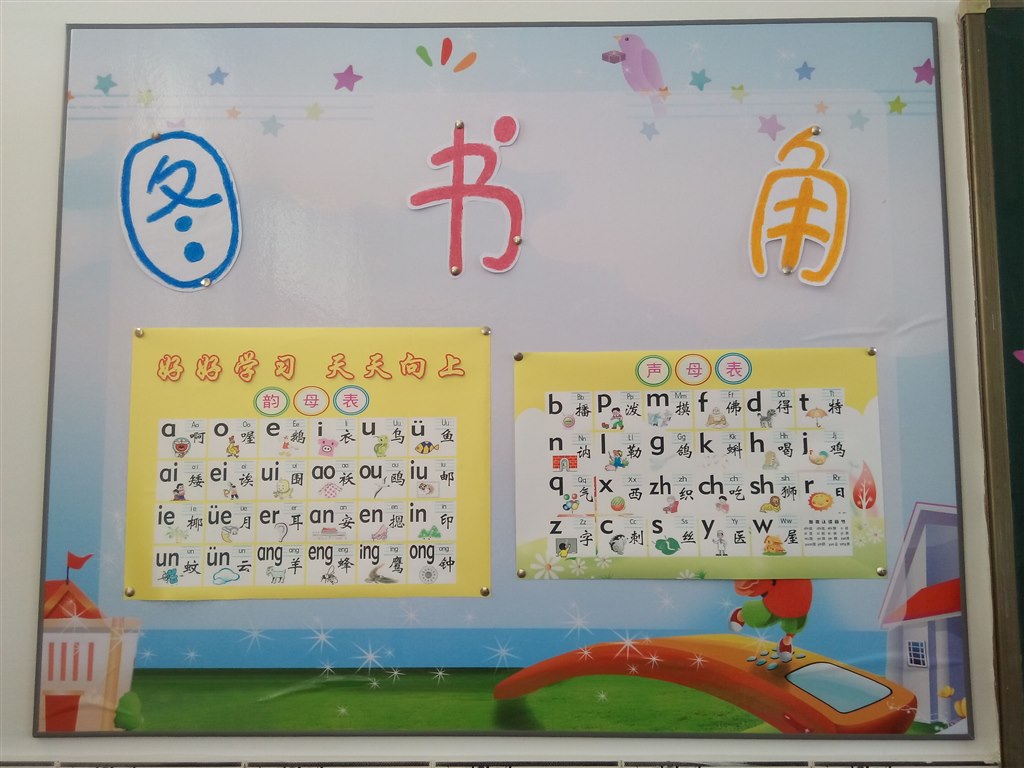 图书角
好好学习 天天向上
韵母表
a 啊 o 喔 e 鹅 i 衣 u 乌 ü 鱼
ai 矮 ei 诶 ui 围 ao 袄 ou 鸥 iu 邮
ie 椰 üe 月 er 耳 an 安 en 摁 in 印
un 蚊 ün 云 ang 羊 eng 蜂 ing 鹰 ong 钟
声母表
b 播 p 泼 m 摸 f 佛 d 得 t 特
n 讷 l 勒 g 鸽 k 蝌 h 喝 j 鸡
q 气 x 西 zh 织 ch 吃 sh 狮 r 日
z 字 c 刺 s 丝 y 医 w 屋